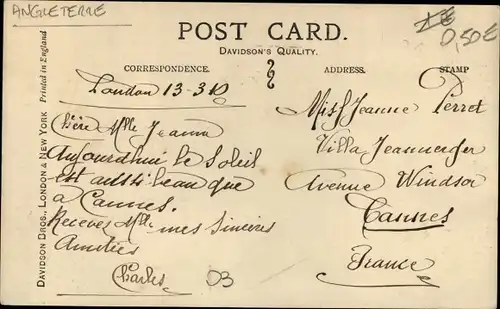 ANGLETERRE
1€
0,50€
POST CARD.
DAVIDSON'S QUALITY.
CORRESPONDENCE.
ADDRESS.
STAMP
DAVIDSON BROS., LONDON & NEW YORK
Printed in England
London 13-3-10
Chère Mlle Jeanne
Aujourd'hui le Soleil
Est aussi beau que
a Cannes.
Recevez Mlle mes Sincères
Amitiés
Charles
03
Miss Jeanne Perret
Villa
Avenue Windsor
Cannes
France